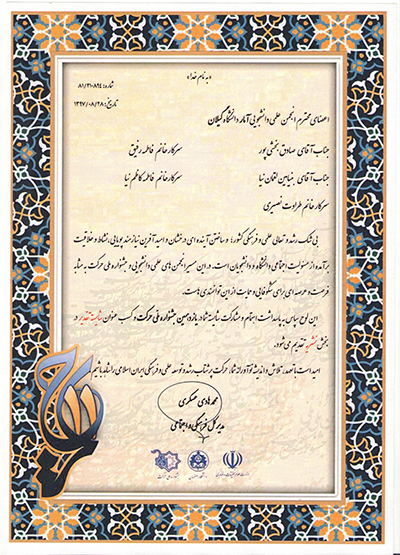 «به نام خدا»
شماره: ۸۱/۳۱۰۸۹۴
تاریخ: ۱۳۹۷/۰۸/۲۸
اعضای محترم انجمن علمی دانشجویی آمار دانشگاه گیلان
جناب آقای صادق بخشی پور سرکار خانم فاطمه رفیق
جناب آقای بنیامین لقمان نیا سرکار خانم فاطمه کاظم نیا
سرکار خانم طراوت نصیری
بی شک رشد و تعالی علمی و فرهنگی کشور؛ و ساختن آینده ای درخشان و امید آفرین نیازمند پویایی، نشاط و خلاقیت
برآمده از مسئولیت اجتماعی دانشگاه و دانشجویان است. در این مسیر انجمن های علمی دانشجویی و جشنواره ملی حرکت به مثابه
فرصت و عرصه ای برای شکوفایی و حمایت از این توانمندی هاست.
این لوح سپاس به پاسداشت اهتمام و مشارکت شایسته شما در یازدهمین جشنواره ملی حرکت و کسب عنوان شایسته تقدیر در
بخش نشریه تقدیم می شود.
امید است با تعهد، تلاش و اندیشه نوآورانه شما، حرکت پرشتاب رشد و توسعه علمی و فرهنگی ایران اسلامی را شاهد باشیم.
محمد هادی عسکری
مدیر کل فرهنگی و اجتماعی